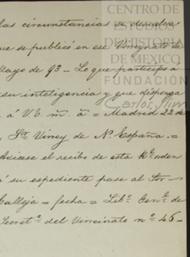 las circunstancias se devuelva
que se publicó en ese Virreynato de
Mayo de 93 – Lo que participo a
su inteligencia y que disponga
à V.E. m. a. = Madrid 22 de
Sr. Virrey de Na. España. =
Acúsese el recibo de esta Rl. orden
á su expediente pase al Sor.
Calleja = fecha = Leb.o Cen.o de
Secret.a del Virreinato n.o 46 –
CENTRO DE
ESTUDIOS
DE HISTORIA
DE MEXICO
FUNDACIÓN
Carlos Slim